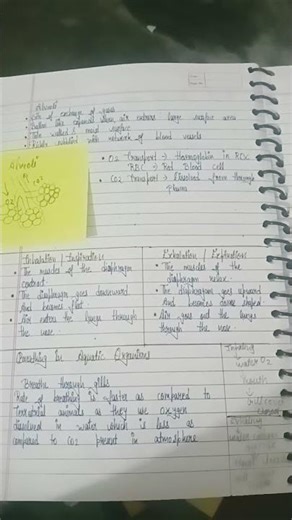 Alveoli
• Site of exchange of gases
• Balloon like structure large surface area
• Thin walled & moist surface
• Richly supplied with network of blood vessels
Alveoli
• O2 Transport → Haemoglobin in RBC
RBC → Red blood cell
• CO2 Transport → Dissolved form through
Plasma
Inhalation / Inspiration
• The muscles of the diaphragm
contract
• The diaphragm goes downward
And becomes flat
• Air enters the lungs through
the nose
Exhalation / Expiration
• The muscles of the
diaphragm relax
• The diaphragm goes upward
And becomes dome shaped
• Air goes out the lungs
through the nose
Breathing in Aquatic Organisms
Breathe through gills
Rate of breathing is faster as compared to
Terrestrial animals as they use oxygen
dissolved in water which is less as
compared to O2 present in atmosphere
water O2
mouth